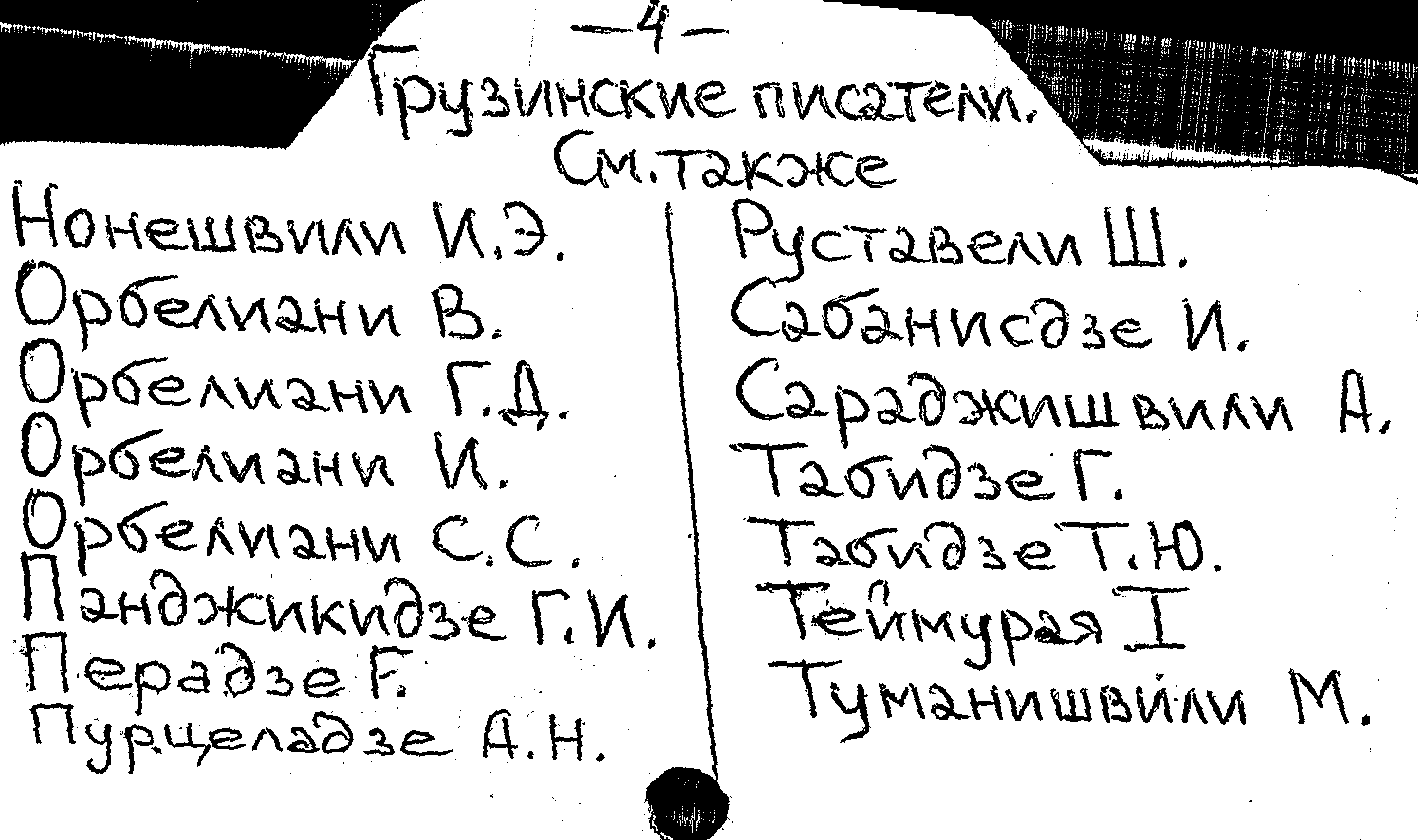 — 4 —
Грузинские писатели.
См. также
Нонешвили И.Э.
Орбелиани В.
Орбелиани Г.Д.
Орбелиани И.
Орбелиани С.С.
Панджикидзе Г.И.
Перадзе Г.
Пурцеладзе А.Н.
Руставели Ш.
Сабанисдзе И.
Сараджишвили А.
Табидзе Г.
Табидзе Т.Ю.
Теймурая I
Туманишвили М.